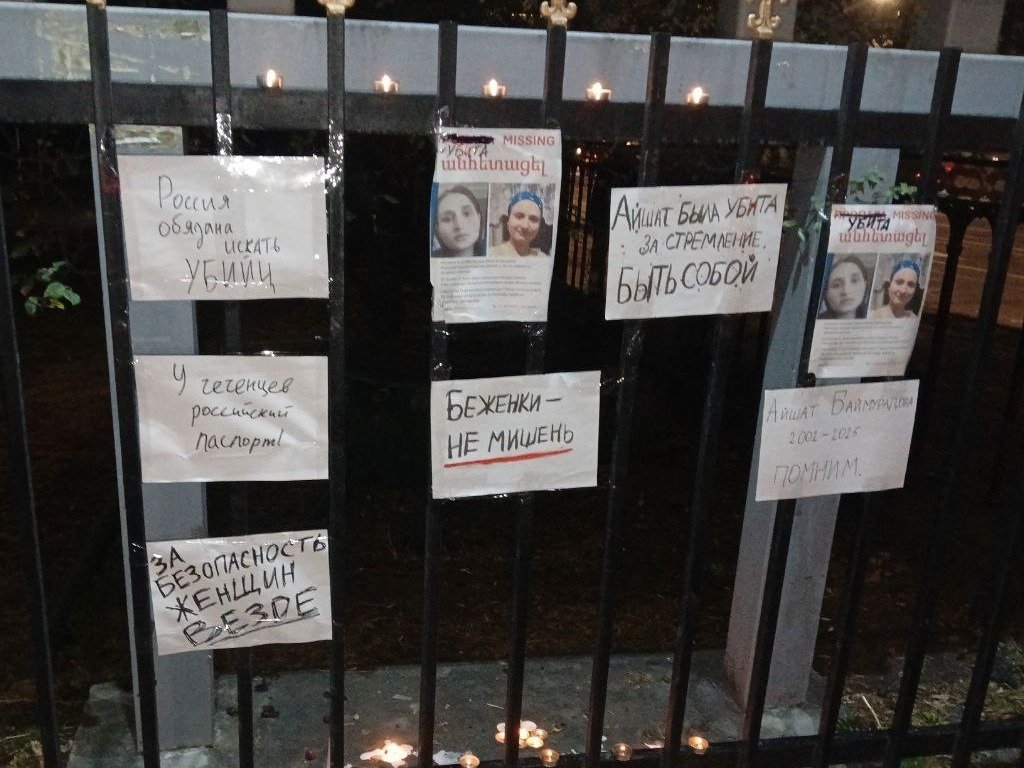 Россия
обязана
искать
УБИЙЦ
УБИТА MISSING
անհետացել
АЙШАТ БЫЛА УБИТА
ЗА СТРЕМЛЕНИЕ
БЫТЬ СОБОЙ
УБИТА MISSING
անհետացել
У чеченцев
российский
паспорт!
БЕЖЕНКИ —
НЕ МИШЕНЬ
АЙШАТ БАЙМУРАДОВА
2002-2025
ПОМНИМ.
ЗА
БЕЗОПАСНОСТЬ
ЖЕНЩИН
ВЕЗДЕ